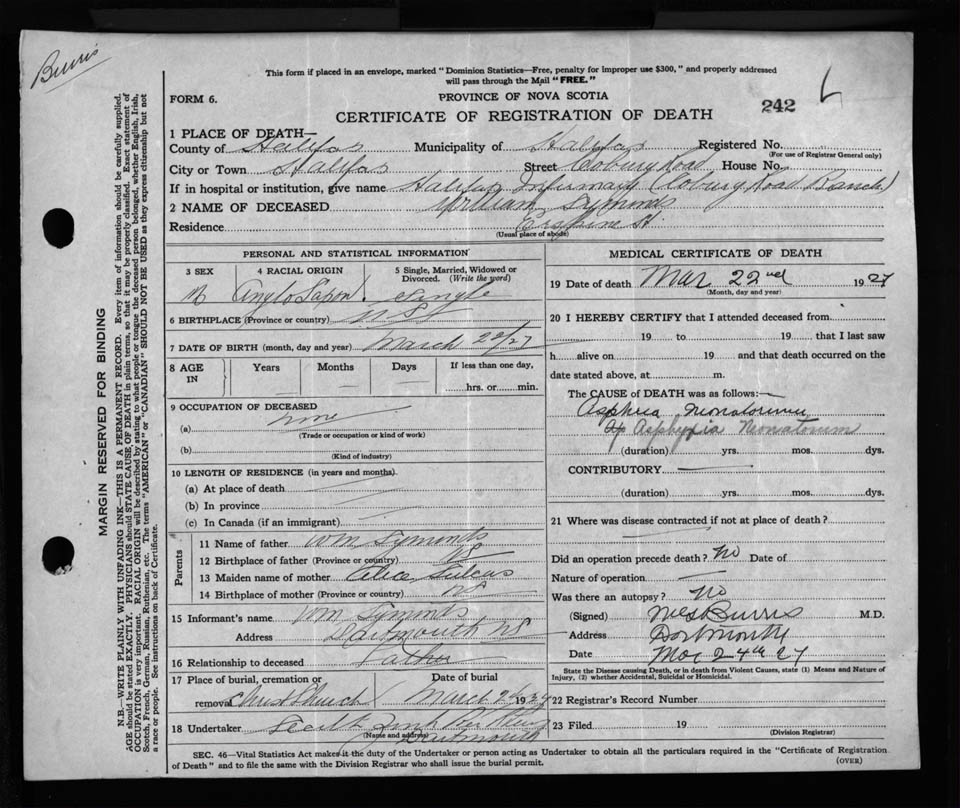 Burris
This form if placed in an envelope, marked "Dominion Statistics—Free, penalty for improper use $300," and properly addressed
will pass through the Mail "FREE."
FORM 6.
PROVINCE OF NOVA SCOTIA
242
CERTIFICATE OF REGISTRATION OF DEATH
1 PLACE OF DEATH—
County of Halifax Municipality of Halifax Registered No.
(For use of Registrar General only)
City or Town Halifax Street Coburg Road House No.
If in hospital or institution, give name Halifax Infirmary (Coburg Road Branch)
2 NAME OF DECEASED William Symonds
Residence St
(Usual place of abode)
PERSONAL AND STATISTICAL INFORMATION
3 SEX 4 RACIAL ORIGIN 5 Single, Married, Widowed or Divorced. (Write the word)
M Anglo Saxon Single
6 BIRTHPLACE (Province or country) NS
7 DATE OF BIRTH (month, day and year) March 22/27
8 AGE IN Years Months Days If less than one day,
hrs. or min.
9 OCCUPATION OF DECEASED
(a) none
(Trade or occupation or kind of work)
(b)
(Kind of industry)
10 LENGTH OF RESIDENCE (in years and months)
(a) At place of death
(b) In province
(c) In Canada (if an immigrant)
Parents
11 Name of father Wm Symonds
12 Birthplace of father (Province or country) NS
13 Maiden name of mother
14 Birthplace of mother (Province or country) NS
15 Informant's name Wm Symonds
Address Dartmouth NS
16 Relationship to deceased Father
17 Place of burial, cremation or removal Christ Church
Date of burial March 19
18 Undertaker
(Name and address) Dartmouth
MEDICAL CERTIFICATE OF DEATH
19 Date of death Mar 22nd 1927
(Month, day and year)
20 I HEREBY CERTIFY that I attended deceased from
19 to 19 that I last saw
h alive on 19 and that death occurred on the
date stated above, at m.
The CAUSE of DEATH was as follows:—
Neonatorum
Asphyxia Neonatorum
(duration) yrs. mos. dys.
CONTRIBUTORY
(duration) yrs. mos. dys.
21 Where was disease contracted if not at place of death?
Did an operation precede death? No Date of
Nature of operation
Was there an autopsy? No
(Signed) Burris M.D.
Address Dartmouth
Date Mar 24th 27
State the Disease causing Death, or in death from Violent Causes, state (1) Means and Nature of
Injury, (2) whether Accidental, Suicidal or Homicidal.
22 Registrar's Record Number
23 Filed 19
(Division Registrar)
SEC. 46—Vital Statistics Act makes it the duty of the Undertaker or person acting as Undertaker to obtain all the particulars required in the "Certificate of Registration
of Death" and to file the same with the Division Registrar who shall issue the burial permit.
(OVER)
MARGIN RESERVED FOR BINDING
N.B.—WRITE PLAINLY WITH UNFADING INK—THIS IS A PERMANENT RECORD. Every item of information should be carefully supplied.
AGE should be stated EXACTLY. PHYSICIANS should STATE CAUSE OF DEATH in plain terms, so that it may be properly classified. Exact statement of
OCCUPATION is very important. RACIAL ORIGIN will be described by stating to what people or tongue the deceased person belonged, whether English, Irish,
Scotch, French, German, Russian, Ruthenian, etc. The terms "AMERICAN" or "CANADIAN" SHOULD NOT BE USED as they express citizenship but not
a race or people. See instructions on back of Certificate.